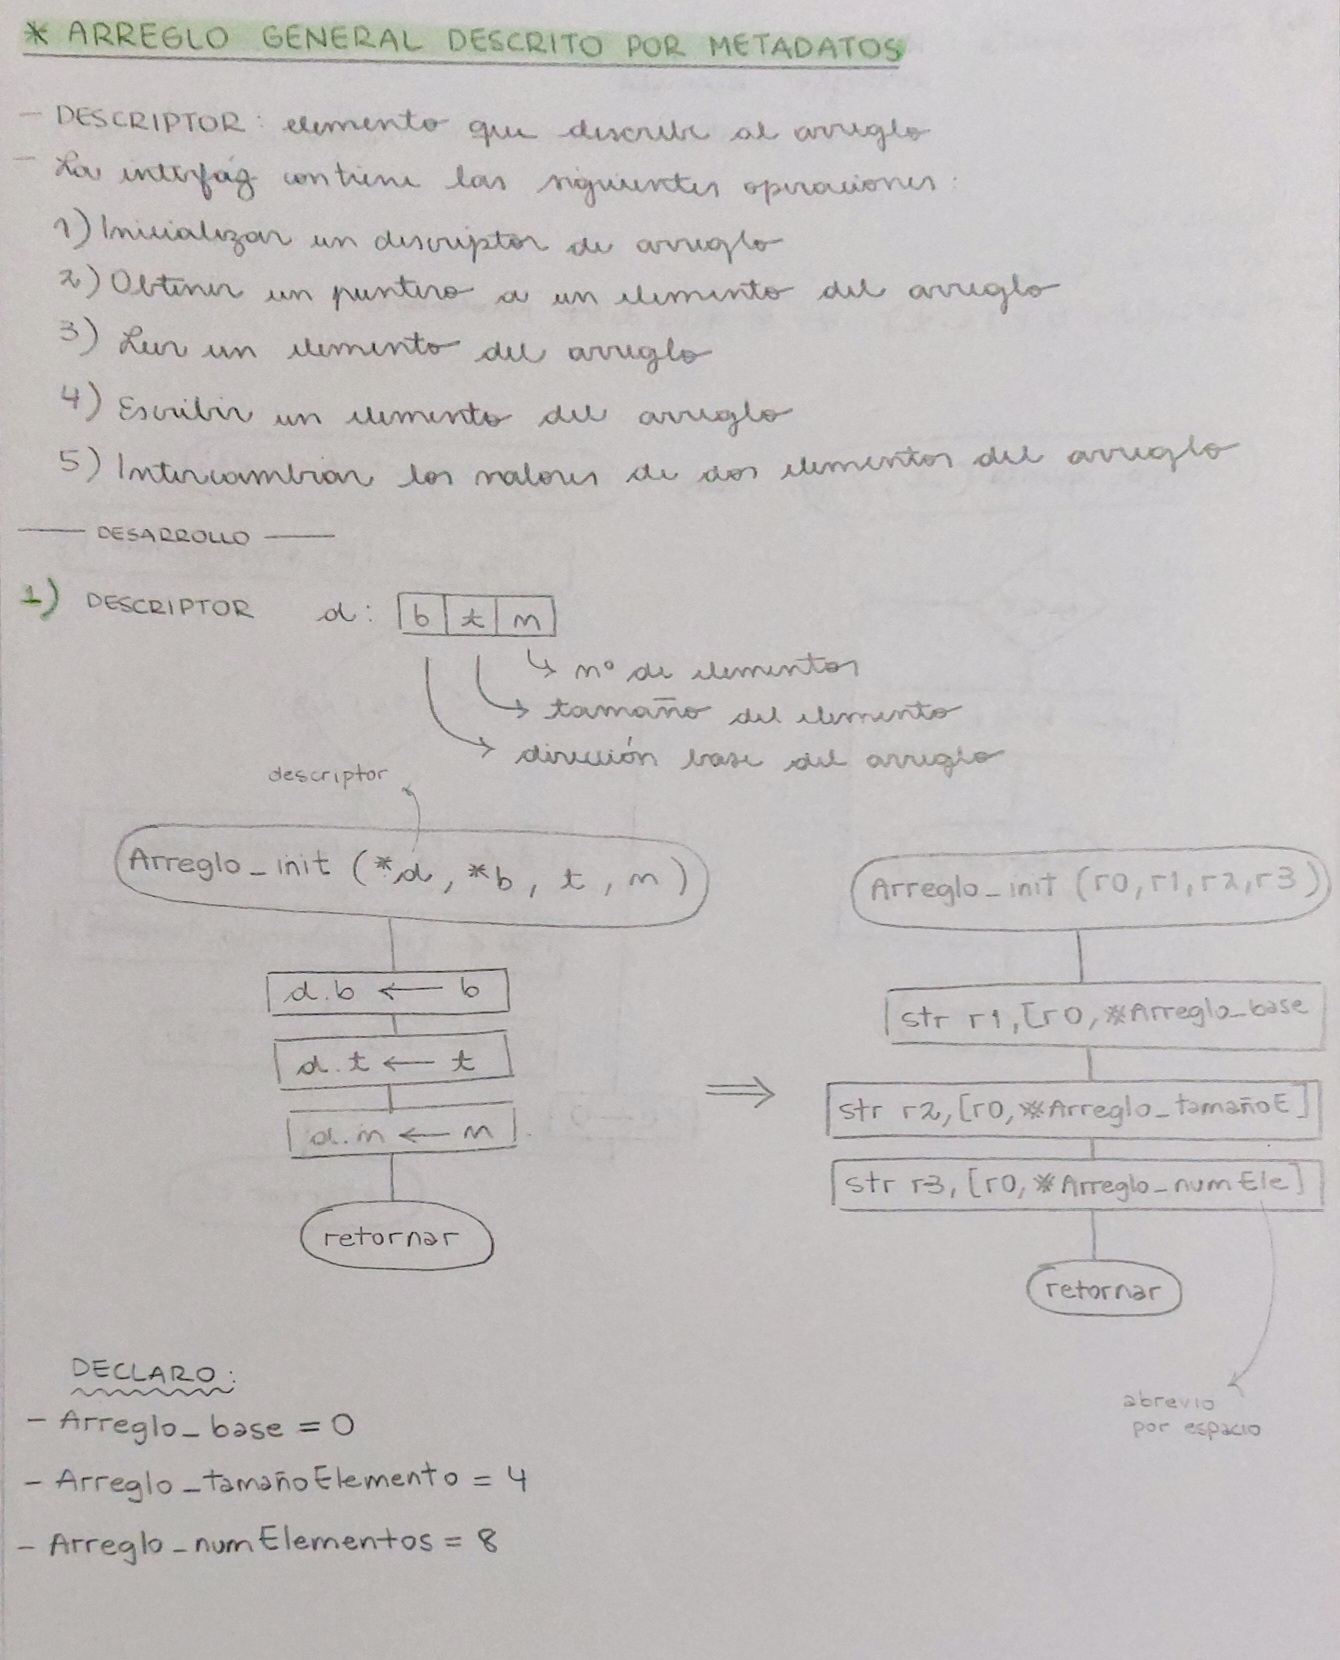 * ARREGLO GENERAL DESCRITO POR METADATOS
- DESCRIPTOR: elemento que describe al arreglo
- La interfaz contiene las siguientes operaciones:
1) Inicializar un descriptor de arreglo
2) Obtener un puntero a un elemento del arreglo
3) Leer un elemento del arreglo
4) Escribir un elemento del arreglo
5) Intercambiar los valores de dos elementos del arreglo
—— DESARROLLO ——
1) DESCRIPTOR d: b t n
↳ nº de elementos
→ tamaño del elemento
→ dirección base del arreglo
descriptor
Arreglo_init (*d, *b, t, n)
d.b ← b
d.t ← t
d.n ← n
retornar
⇒
Arreglo_init (r0, r1, r2, r3)
str r1, [r0, *Arreglo_base
str r2, [r0, *Arreglo_tamañoE]
str r3, [r0, *Arreglo_numEle]
retornar
abrevio
por espacio
DECLARO:
- Arreglo_base = 0
- Arreglo_tamañoElemento = 4
- Arreglo_numElementos = 8